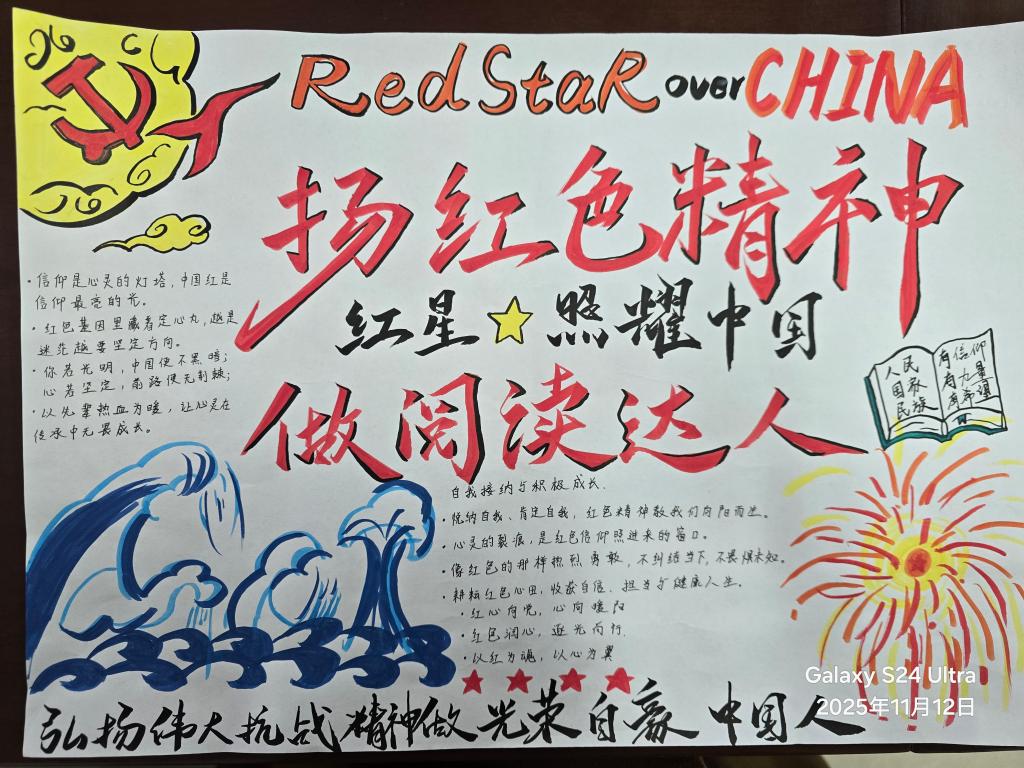 Red Star over CHINA
扬红色精神
红星照耀中国
做阅读达人
·信仰是心灵的灯塔,中国红是
信仰最亮的光。
·红色基因里藏着定心丸,越是
迷茫越要坚定方向。
·你若光明,中国便不黑暗;
心若坚定,前路便无荆棘;
·以先辈热血为暖,让心灵在
传承中无畏成长。
人民
国家
民族
有信仰
有力量
有希望
自我接纳与积极成长.
·悦纳自我、肯定自我,红色精神教我们向阳而生。
·心灵的裂痕,是红色信仰照进来的窗口。
·像红色的那样热烈勇敢,不纠结当下,不畏惧未知。
·耕耘红色心田,收获自信、担当与健康人生。
·红心向党,心向暖阳
·红色润心,逐光而行.
·以红为魂,以心为翼
弘扬伟大抗战精神做光荣自豪中国人
Galaxy S24 Ultra
2025年11月12日